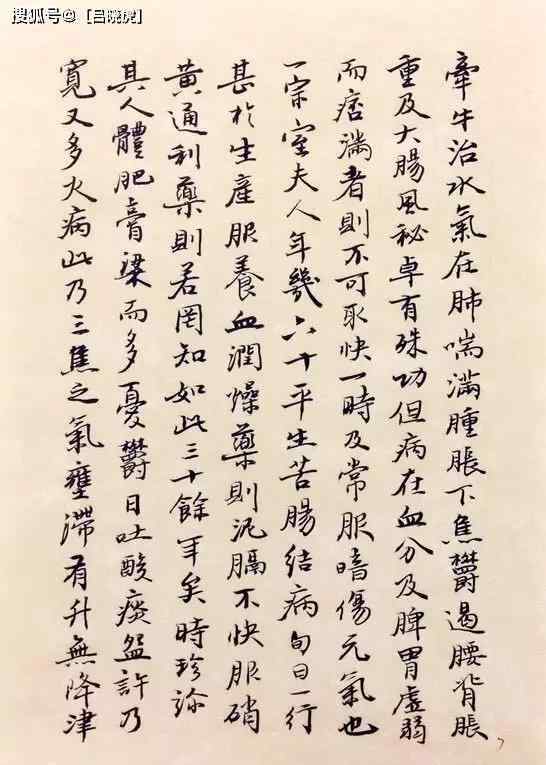 搜狐号@【吕晓虎】
牵牛治水氣在肺喘滿腫脹下焦鬱遏腰背脹
重及大腸風秘卓有殊功但病在血分及脾胃虛弱
而痞滿者則不可取快一時及常服暗傷元氣也
一宗室夫人年幾六十平生苦腸結病旬日一行
甚於生產服養血潤燥藥則泥膈不快服硝
黃通利藥則若罔知如此三十餘年矣時珍診
其人體肥膏粱而多憂鬱日吐酸痰盌許乃
寬又多火病此乃三焦之氣壅滯有升無降津